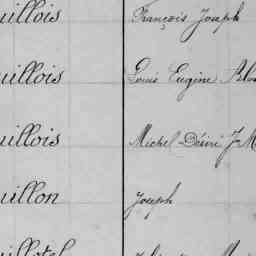 uillois François Joseph
uillois Louis Eugène
uillois Michel Désiré
uillon Joseph